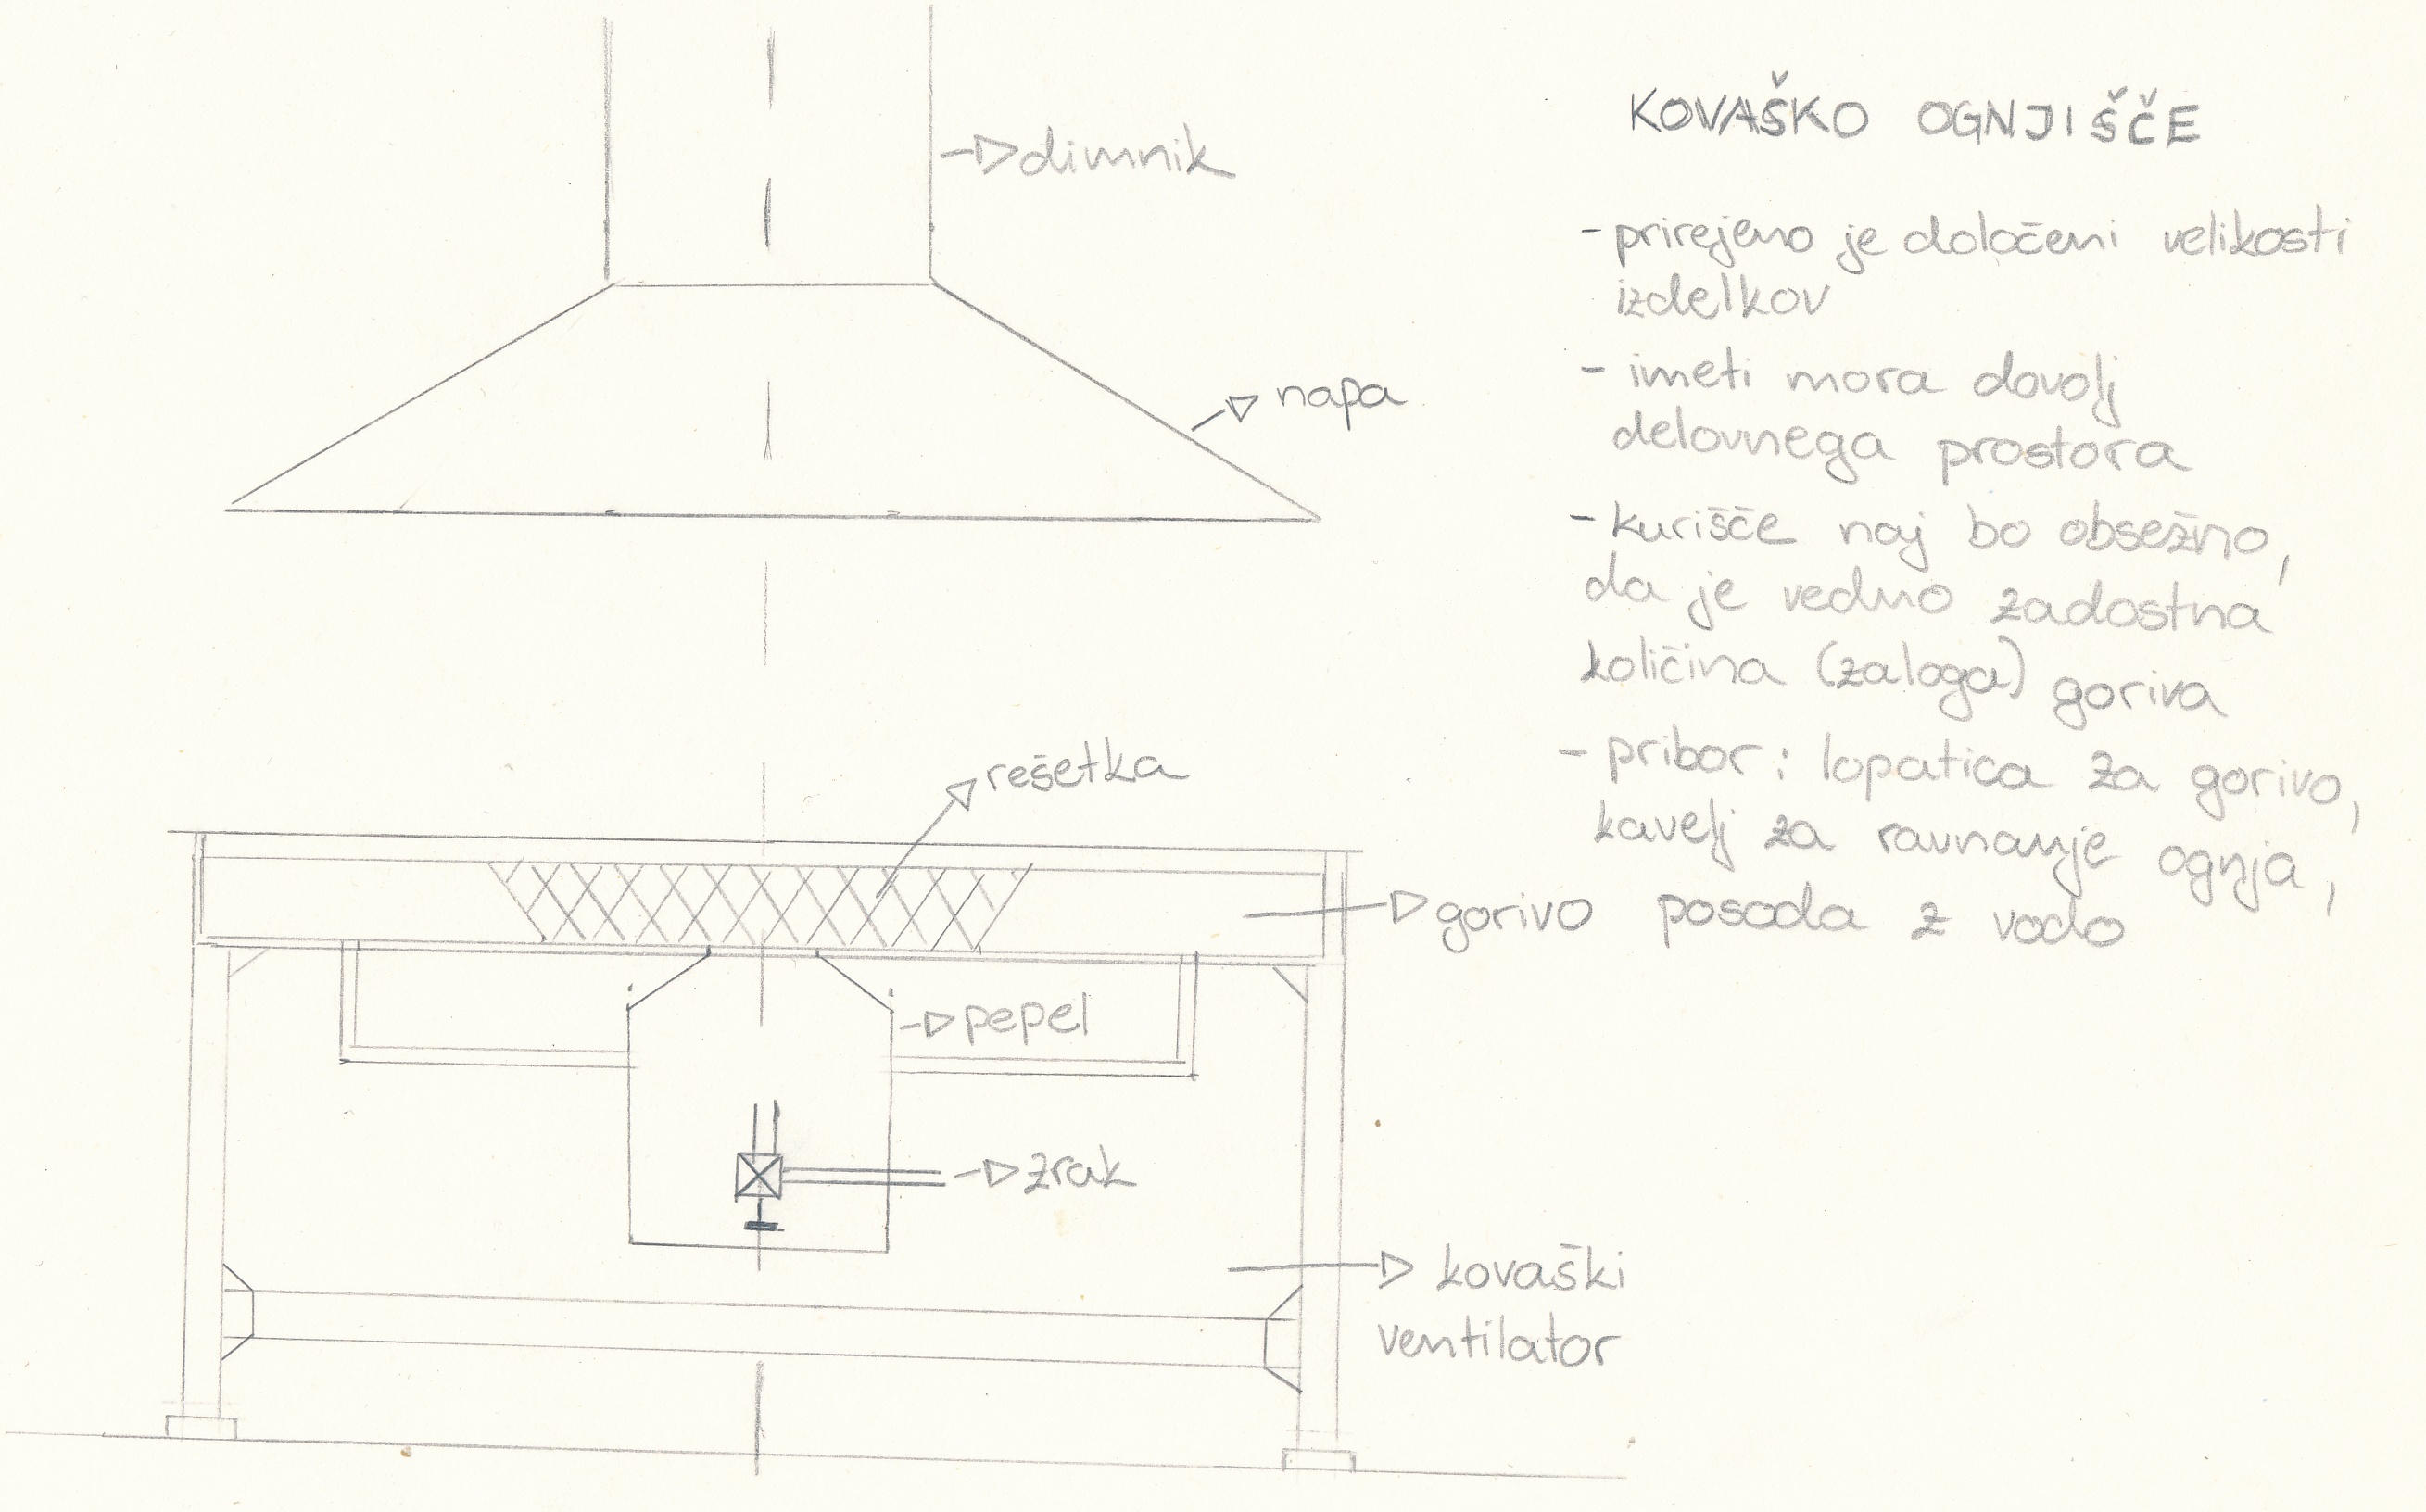 KOVAŠKO OGNJIŠČE
- prirejeno je določeni velikosti
izdelkov
- imeti mora dovolj
delovnega prostora
- kurišče naj bo obsežno,
da je vedno zadostna
količina (zaloga) goriva
- pribor: lopatica za gorivo,
kavelj za ravnanje ognja,
posoda z vodo
dimnik
napa
rešetka
gorivo
pepel
zrak
kovaški
ventilator